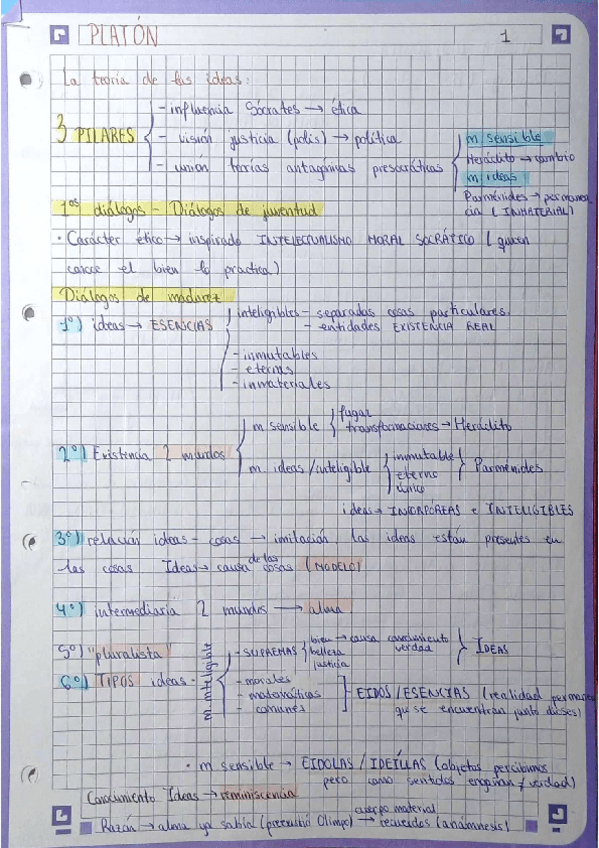 PLATÓN 1
La teoría de las ideas:
3 PILARES
- influencia Sócrates → ética
- visión justicia (polis) → política
- unión teorías antagónicas presocráticas
m sensible
Heráclito → cambio
m ideas
Parménides → permanen
cia (INMATERIAL)
1os diálogos - Diálogos de juventud
· Carácter ético → inspirado INTELECTUALISMO MORAL SOCRÁTICO (quien
conoce el bien lo practica)
Diálogos de madurez
1º) ideas → ESENCIAS
inteligibles - separadas cosas particulares.
- entidades EXISTENCIA REAL
- inmutables
- eternas
- inmateriales
2º) Existencia 2 mundos
m sensible
fugaz
transformaciones → Heráclito
m. ideas/inteligible
inmutable
eterno
único
Parménides
ideas → INCORPÓREAS e INTELIGIBLES
3º) relación ideas - cosas → imitación. las ideas están presentes en
las cosas Ideas → causa de las cosas (MODELO)
4º) intermediaria 2 mundos → alma.
5º) "pluralista"
6º) TIPOS ideas -
m. inteligible
- SUPREMAS
bien → causa conocimiento
verdad
belleza
justicia
IDEAS
- morales
- matemáticas
- comunes
EIDOS/ESENCIAS (realidad permanente
que se encuentran junto dioses)
· m sensible → EIDOLAS / IDEÍLLAS (objetos percibimos
pero como sentidos engañan ≠ verdad)
Conocimiento Ideas → reminiscencia
Razón → alma ya sabía (preexistió Olimpo) → cuerpo material recuerdos (anámnesis)